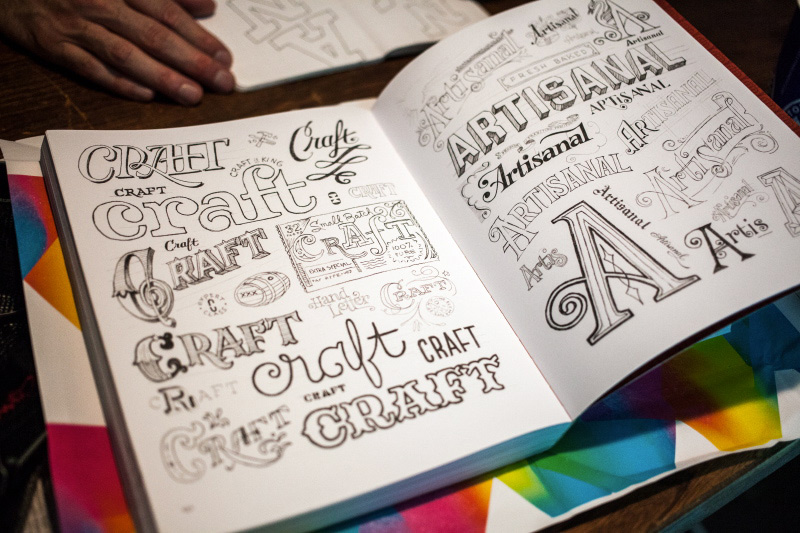 CRAFT
Craft
CRAFT IS KING
CRAFT
craft
CRAFT
Craft
CRAFT
Small Batch
CRAFT
EXTRA SPECIAL
100%
PURE
XXX
Hand
Letter
CRAFT
CRAFT
craft
CRAFT
CRAFT
CRAFT
CRAFT
CRAFT
Artisanal
Artisanal
A
Artisanal
FRESH BAKED
ARTISANAL
ARTISANAL
Artisanal
ARTISANAL
ARTISANAL
Artisanal
Artisanal
Artisanal
A
Artis
Artis
A